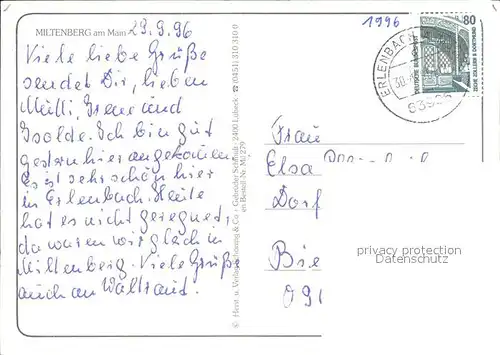 MILTENBERG am Main
29.9.96
Viele liebe Grüße
sendet Dir, lieben
Mutti, Irene und
Isolde. Ich bin gut
gestern hier angekommen
Es ist sehr schön hier
in Erlenbach. Heute
hat es nicht geregnet,
da waren wir gleich in
Miltenberg. Viele Grüße
auch an Waltraud.
© Herst. u. Verlag Schöning & Co + Gebrüder Schmidt, 23400 Lübeck ☎ (0451) 310 310 0
Bestell-Nr. Mil 229
1996
80
DEUTSCHE BUNDESPOST
ZECHE ZOLLERN II DORTMUND
ERLENBACH
30
Frau
Elsa
Dorf
Bie
091
privacy protection
Datenschutz